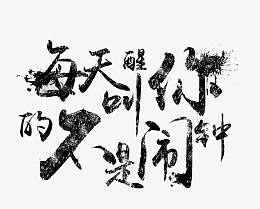 每天叫醒你
的不是闹钟